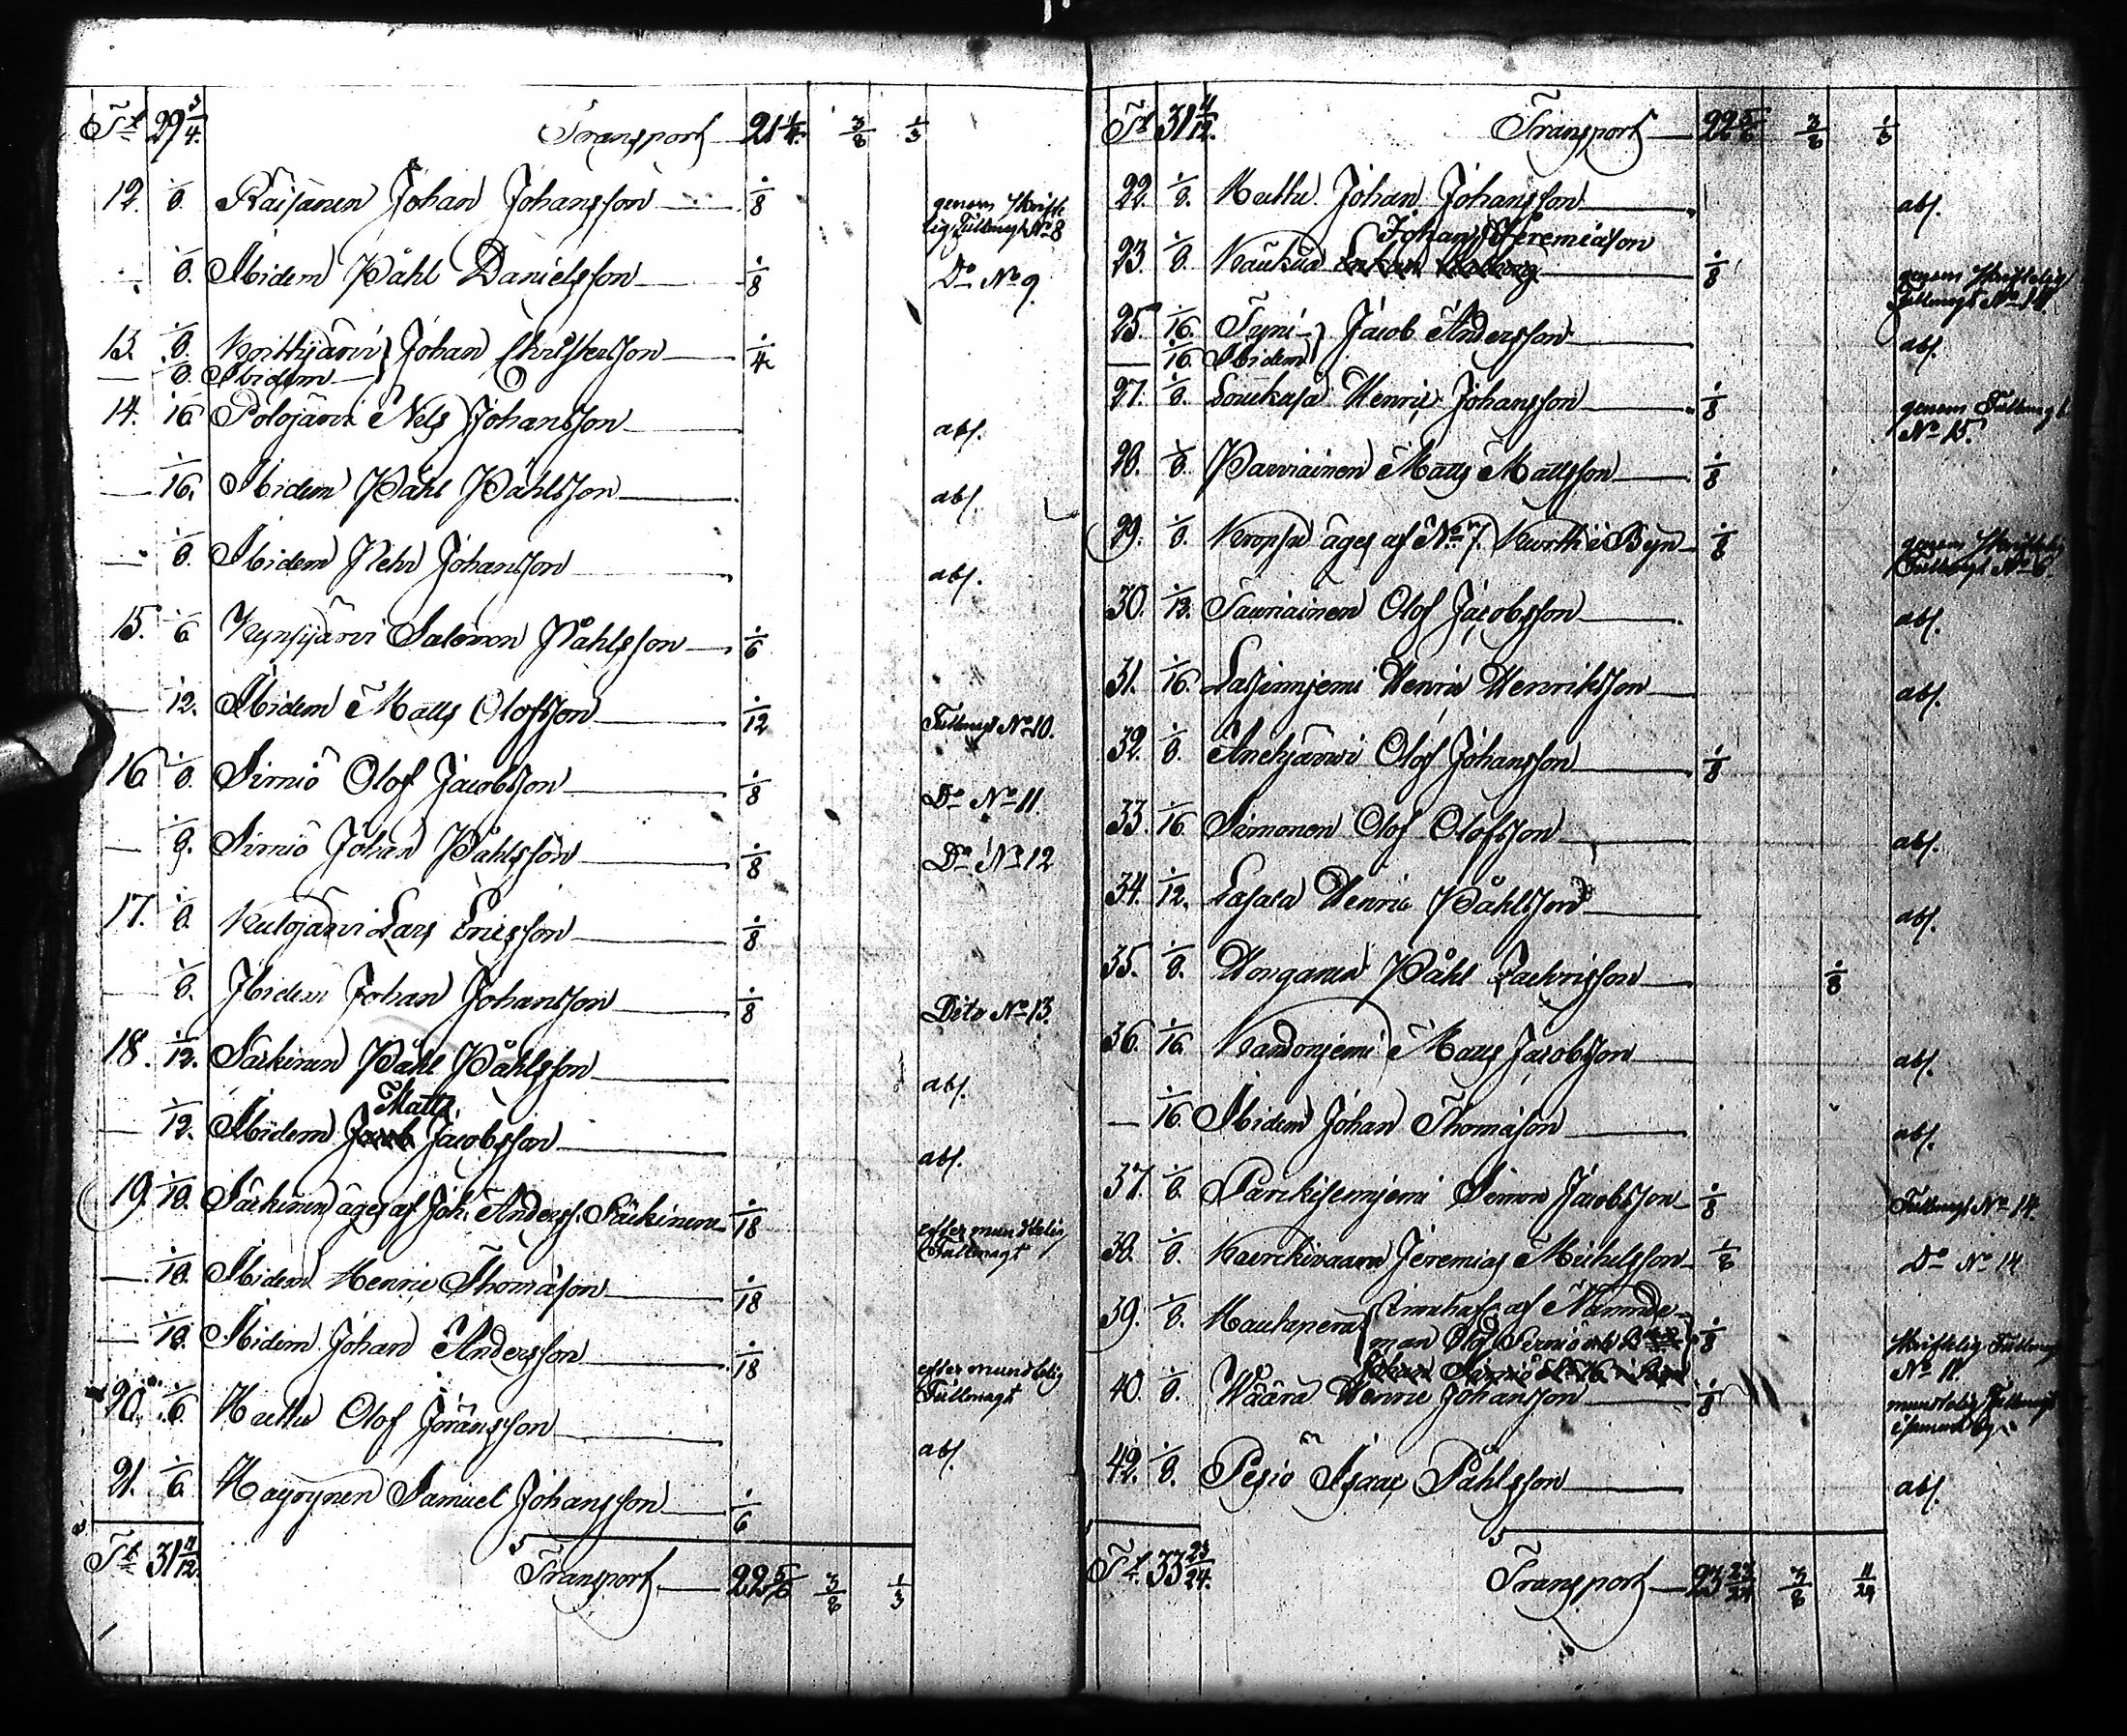 Tt 29 3/4. Transport 21 1/4. 3/8 1/3
12. 1/8. Räisänen Johan Johansson 1/8 genom skrift-
lig Fullmagt No 8
1/8. Ibidem Påhl Danielsson 1/8 Do No 9.
13. 1/8. Johan Christersson 1/4
— 1/8. Ibidem
14. 1/16 Polojärvi Nils Johansson abs.
— 1/16. Ibidem Påhl Påhlsson abs.
— 1/8. Ibidem Pehr Johansson abs.
15. 1/6 Kynsijärvi Salomon Påhlsson 1/6
— 1/12. Ibidem Matts Olofsson 1/12 Fullmagt No 10.
16 1/8. Sirniö Olof Jacobsson 1/8 Do No 11.
— 1/8. Sirniö Johan Påhlsson 1/8 Do No 12
17. 1/8. Kulojärvi Lars Ericsson 1/8
— 1/8. Ibidem Johan Johansson 1/8 Dito No 13.
18. 1/12. Särkinen Påhl Påhlsson abs.
Matts
— 1/12. Ibidem Jacob Jacobsson abs.
19. 1/18. Särkinen äges af Joh. Anderss. Särkinen 1/18 efter muntelig
Fullmagt
— 1/18. Ibidem Henric Thomasson 1/18
— 1/18. Ibidem Johan Andersson 1/18 efter muntelig
Fullmagt
20. 1/6. Olof Jöransson abs.
21. 1/6. Häyrynen Samuel Johansson 1/6
Tt 31 4/12. Transport 22 5/6 3/8 1/3
Tt 31 4/12. Transport 22 5/6 3/8 1/3
22. 1/8. Johan Johansson abs.
Johan Jeremiason
23. 1/8. 1/8 genom skriftelig
Fullmagt No 14.
25. 1/16. Jacob Andersson abs.
— 1/16. Ibidem
27. 1/8. Loukusa Henric Johansson 1/8 genom Fullmagt
No 15.
28. 1/8. Parviainen Matts Mattsson 1/8
29. 1/8. Kropsu äges af No 7. Kurtti i Byn 1/8 genom skriftelig
Fullmagt No 6.
30. 1/12. Tauriainen Olof Jacobsson abs.
31. 1/16. Henric Henriksson abs.
32. 1/8. Olof Johansson 1/8
33. 1/16 Simonen Olof Olofsson abs.
34. 1/12. Lasala Henric Påhlsson abs.
35. 1/8. Horganen Påhl Zachrisson 1/8
36. 1/16. Matts Jacobsson abs.
— 1/16. Ibidem Johan Thomason abs.
37. 1/8. Simon Jacobsson 1/8 Fullmagt No 14.
38. 1/8. Jeremias Michelsson 1/8 Do No 14
39. 1/8. Hautaperä innehafs af Nämnde-
man Olof Sirniö 1/8 skriftelig Fullmagt
No 11.
40. 1/8. Wäärä Henric Johansson 1/8 muntelig Fullmagt
42. 1/8. Pesiö Isaac Påhlsson abs.
Tt. 33 23/24. Transport 23 23/24 3/8 11/24